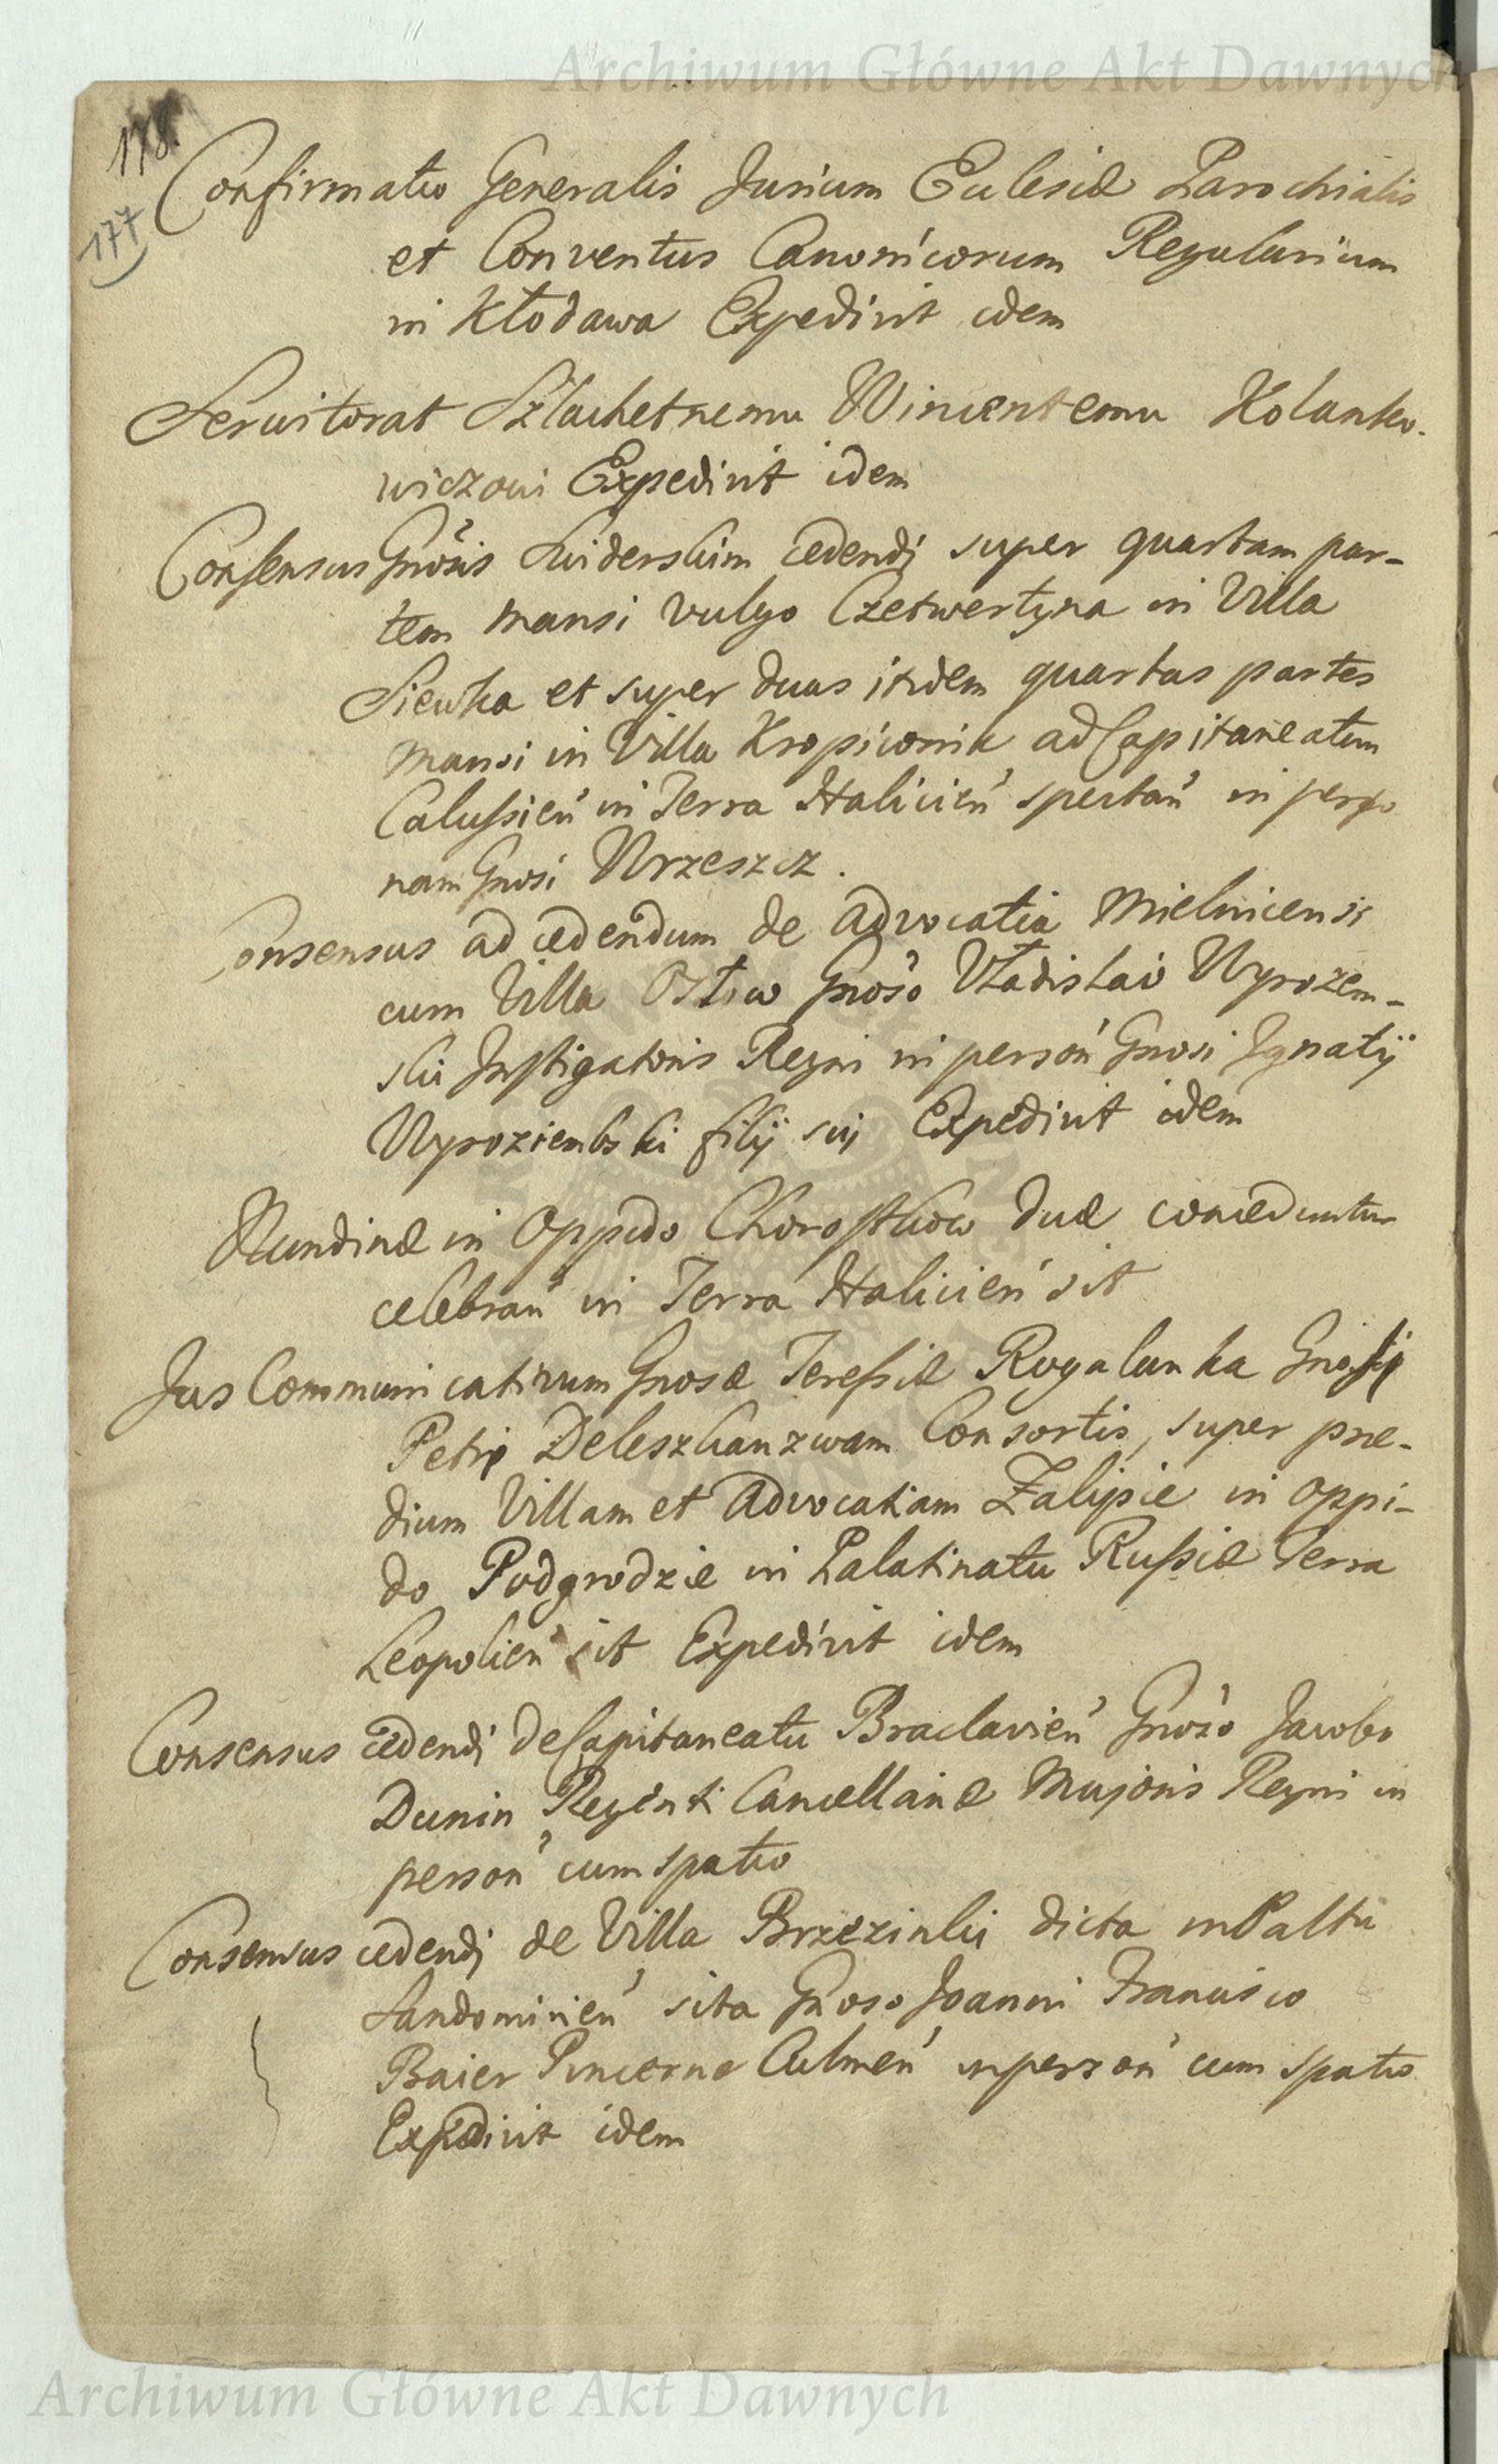 Archiwum Główne Akt Dawnych
178.
177
Confirmatio Generalis Jurium Eclesiæ Parochialis
et Conventus Canonicorum Regularium
in Kłodawa Expedivit idem
Servitorat Szlachetnemu Wincentemu Kolanko-
wiczowi Expedivit idem
Consensus Gnosis Swiderskim cedendi super quartam par-
tem mansi vulgo Czetwertyna in Villa
Siewka et super duas itidem quartas partes
mansi in Villa Kropiwnik ad Capitaneatum
Calussień in Terra Halicień spectań in perso
nam Gnosi Wrzeszcz.
Consensus ad cedendum de Advocatia Mielnicensis
cum Villa Osłow Gnoso Vładislao Wyrozem-
ski Instigatoris Regni in persoń Gnosi Ignatij
Wyroziembski filij sui Expedivit idem
Nundinæ in Oppido Chorostkow duæ conceduntur
celebrań in Terra Halicień sit
Jus Communicativum Gnosæ Teressiæ Rogalanka Gnosi
Petri Deleszkanzwam Consortis, super præ-
dium Villam et Advocatiam Zalipie in oppi-
do Podgrodzie in Palatinatu Russiæ Terra
Leopolień sit Expedivit idem
Consensus cedendi de Capitaneatu Braclavień Gnoso Jacobo
Dunin Regenti Cancellariæ Majoris Regni in
persoń cum spatio
Consensus cedendi de Villa Brzezinki dicta in Paltu
Sandomirień sita Gnoso Joanni Francisco
Baier Pincerna Culmeń in persoń cum spatio
Expedivit idem
Archiwum Główne Akt Dawnych